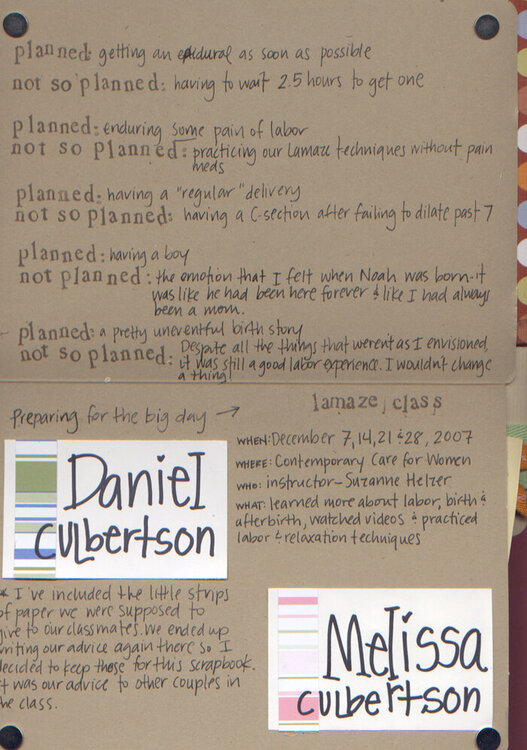 planned: getting an epidural as soon as possible
not so planned: having to wait 2.5 hours to get one
planned: enduring some pain of labor
not so planned: practicing our Lamaze techniques without pain
meds
planned: having a "regular" delivery
not so planned: having a C-section after failing to dilate past 7
planned: having a boy
not planned: the emotion that I felt when Noah was born-it
was like he had been here forever & like I had always
been a mom.
planned: a pretty uneventful birth story
not so planned: Despite all the things that weren't as I envisioned,
it was still a good labor experience. I wouldn't change
a thing!
Preparing for the big day →
lamaze class
WHEN: December 7, 14, 21 & 28, 2007
WHERE: Contemporary Care for Women
WHO: instructor- Suzanne Helzer
WHAT: learned more about labor, birth &
afterbirth, watched videos & practiced
labor & relaxation techniques
Daniel
Culbertson
* I've included the little strips
of paper we were supposed to
give to our classmates. We ended up
writing our advice again there so I
decided to keep these for this scrapbook.
It was our advice to other couples in
the class.
Melissa
Culbertson